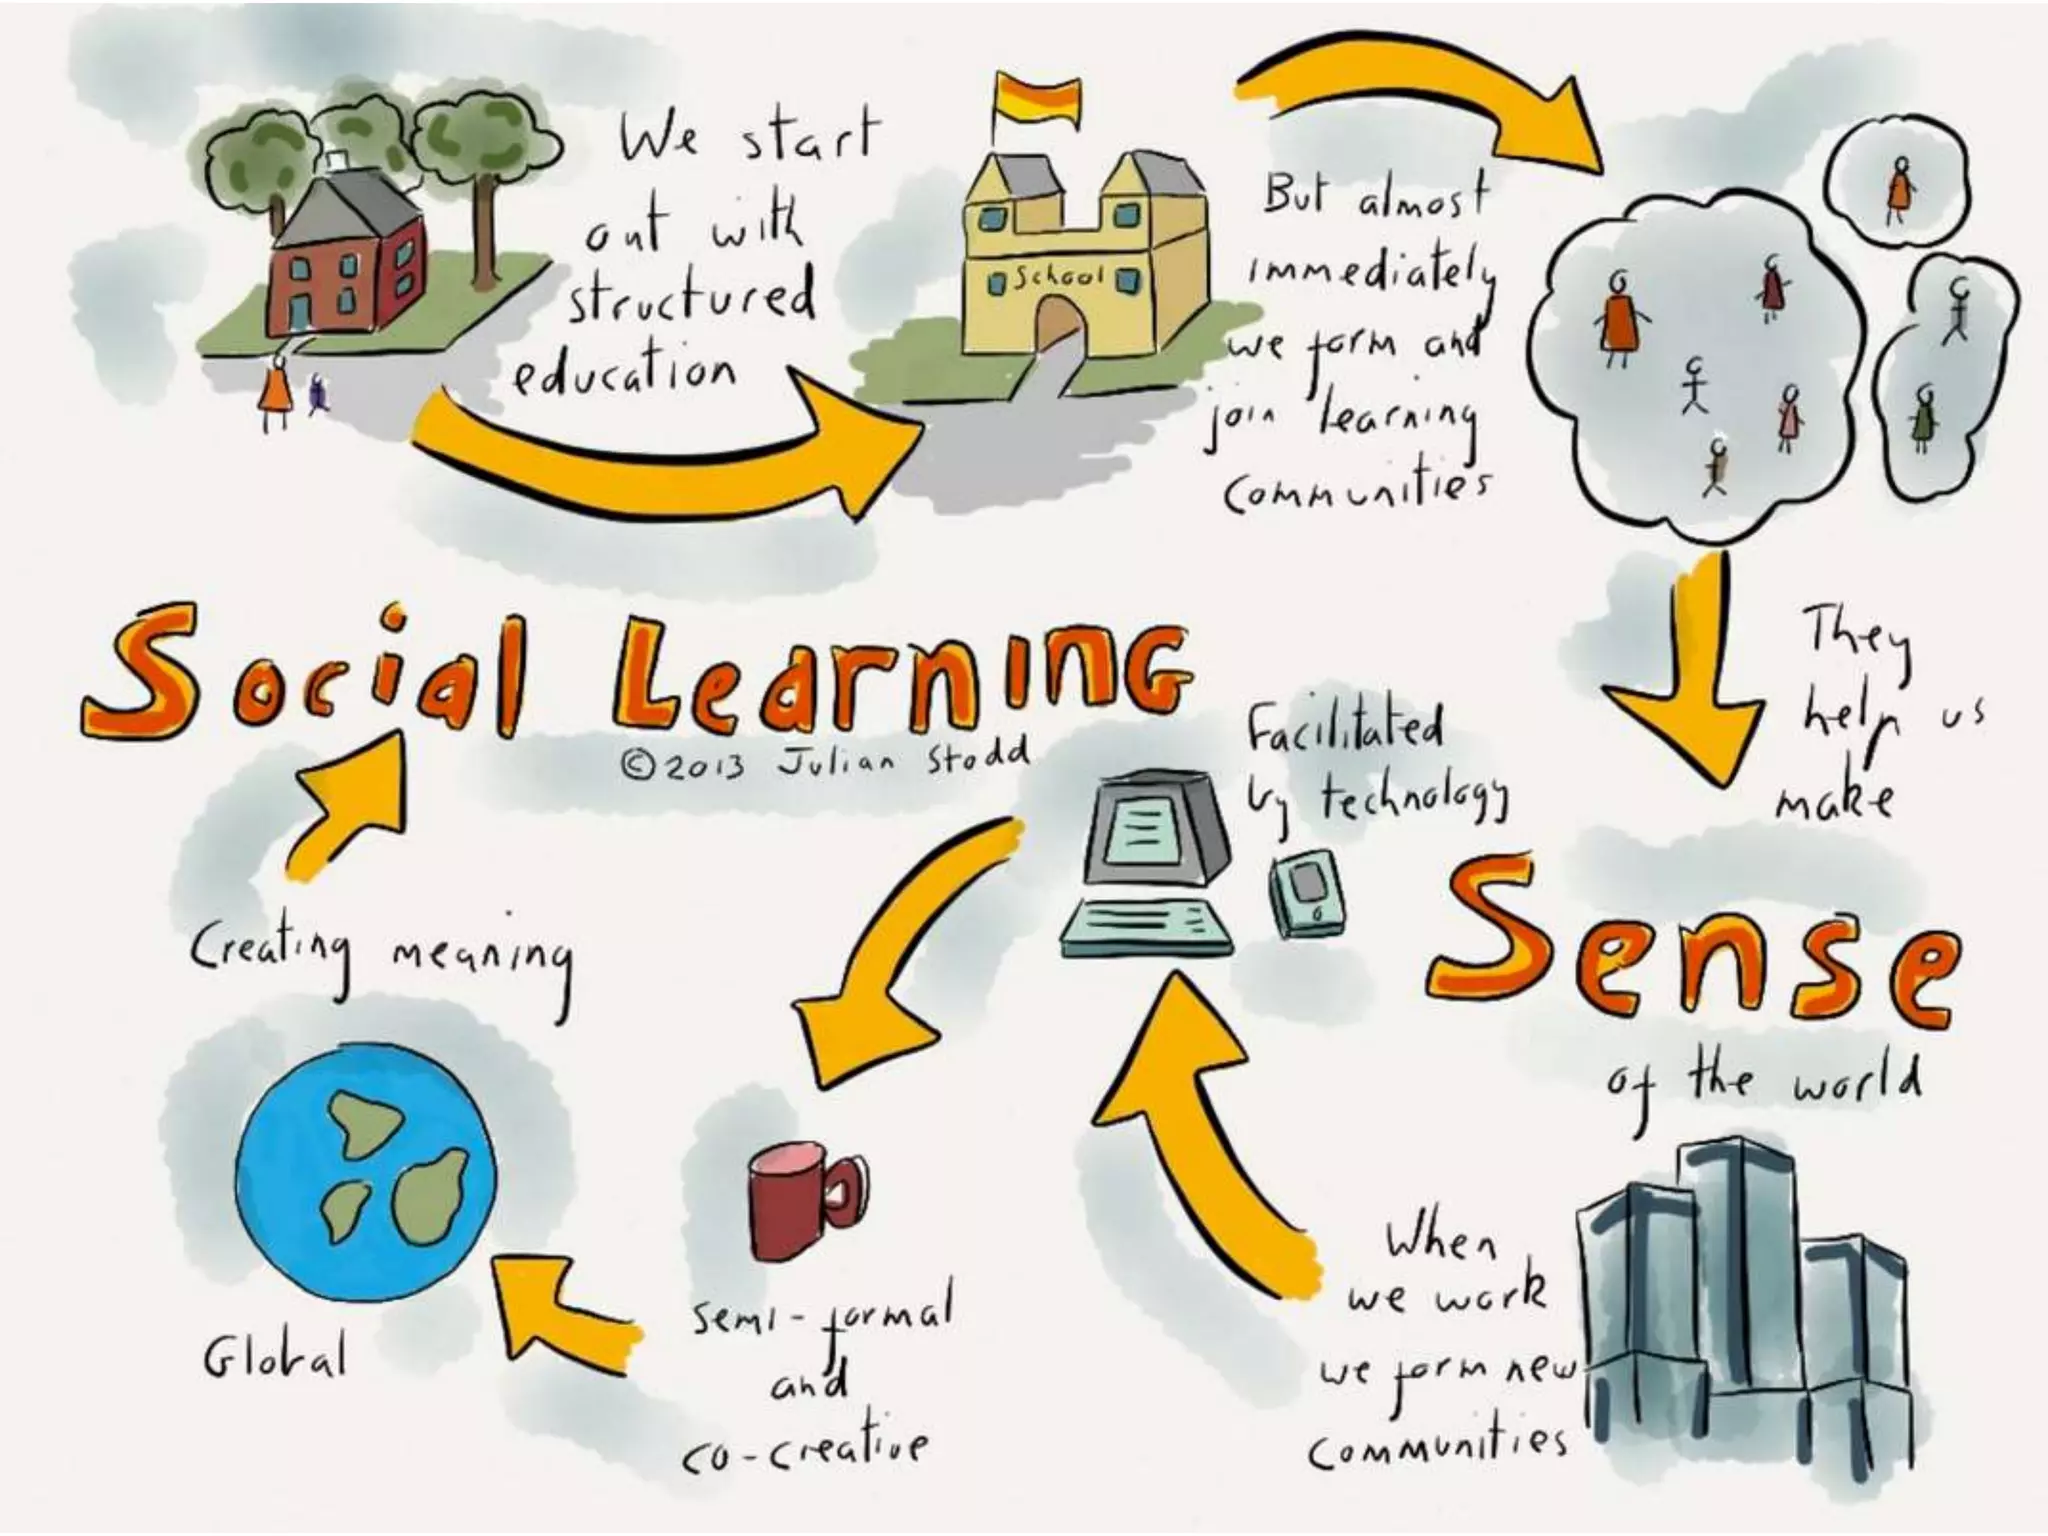 We start
out with
structured
education
School
But almost
immediately
we form and
join learning
communities
They
help us
make
Sense
of the world
When
we work
we form new
communities
Facilitated
by technology
semi-formal
and
co-creative
Global
Creating meaning
Social Learning
©2013 Julian Stodd